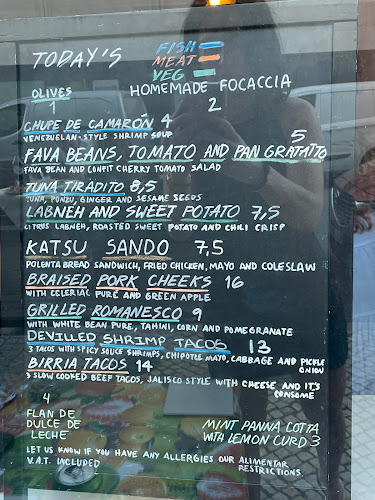 TODAY'S
FISH
MEAT
VEG
OLIVES
1
HOMEMADE FOCACCIA
2
CHUPE DE CAMARÓN 4
VENEZUELAN-STYLE SHRIMP SOUP
5
FAVA BEANS, TOMATO AND PAN GRATATTO
FAVA BEAN AND CONFIT CHERRY TOMATO SALAD
TUNA TIRADITO 8,5
TUNA, PONZU, GINGER AND SESAME SEEDS
LABNEH AND SWEET POTATO 7,5
CITRUS LABNEH, ROASTED SWEET POTATO AND CHILI CRISP
KATSU SANDO 7,5
POLENTA BREAD SANDWICH, FRIED CHICKEN, MAYO AND COLESLAW
BRAISED PORK CHEEKS 16
WITH CELERIAC PURE AND GREEN APPLE
GRILLED ROMANESCO 9
WITH WHITE BEAN PURE, TAHINI, CORN AND POMEGRANATE
DEVILLED SHRIMP TACOS 13
3 TACOS WITH SPICY SAUCE SHRIMPS, CHIPOTLE MAYO, CABBAGE AND PICKLE
ONION
BIRRIA TACOS 14
3 SLOW COOKED BEEF TACOS, JALISCO STYLE WITH CHEESE AND IT'S
CONSOME
4
FLAN DE
DULCE DE
LECHE
MINT PANNA COTTA
WITH LEMON CURD 3
LET US KNOW IF YOU HAVE ANY ALLERGIES OUR ALIMENTAR
RESTRICTIONS.
V.A.T. INCLUDED